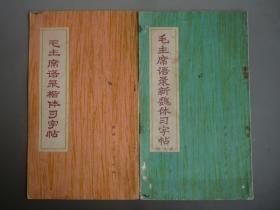 毛主席语录楷体习字帖
毛主席语录新魏体习字帖